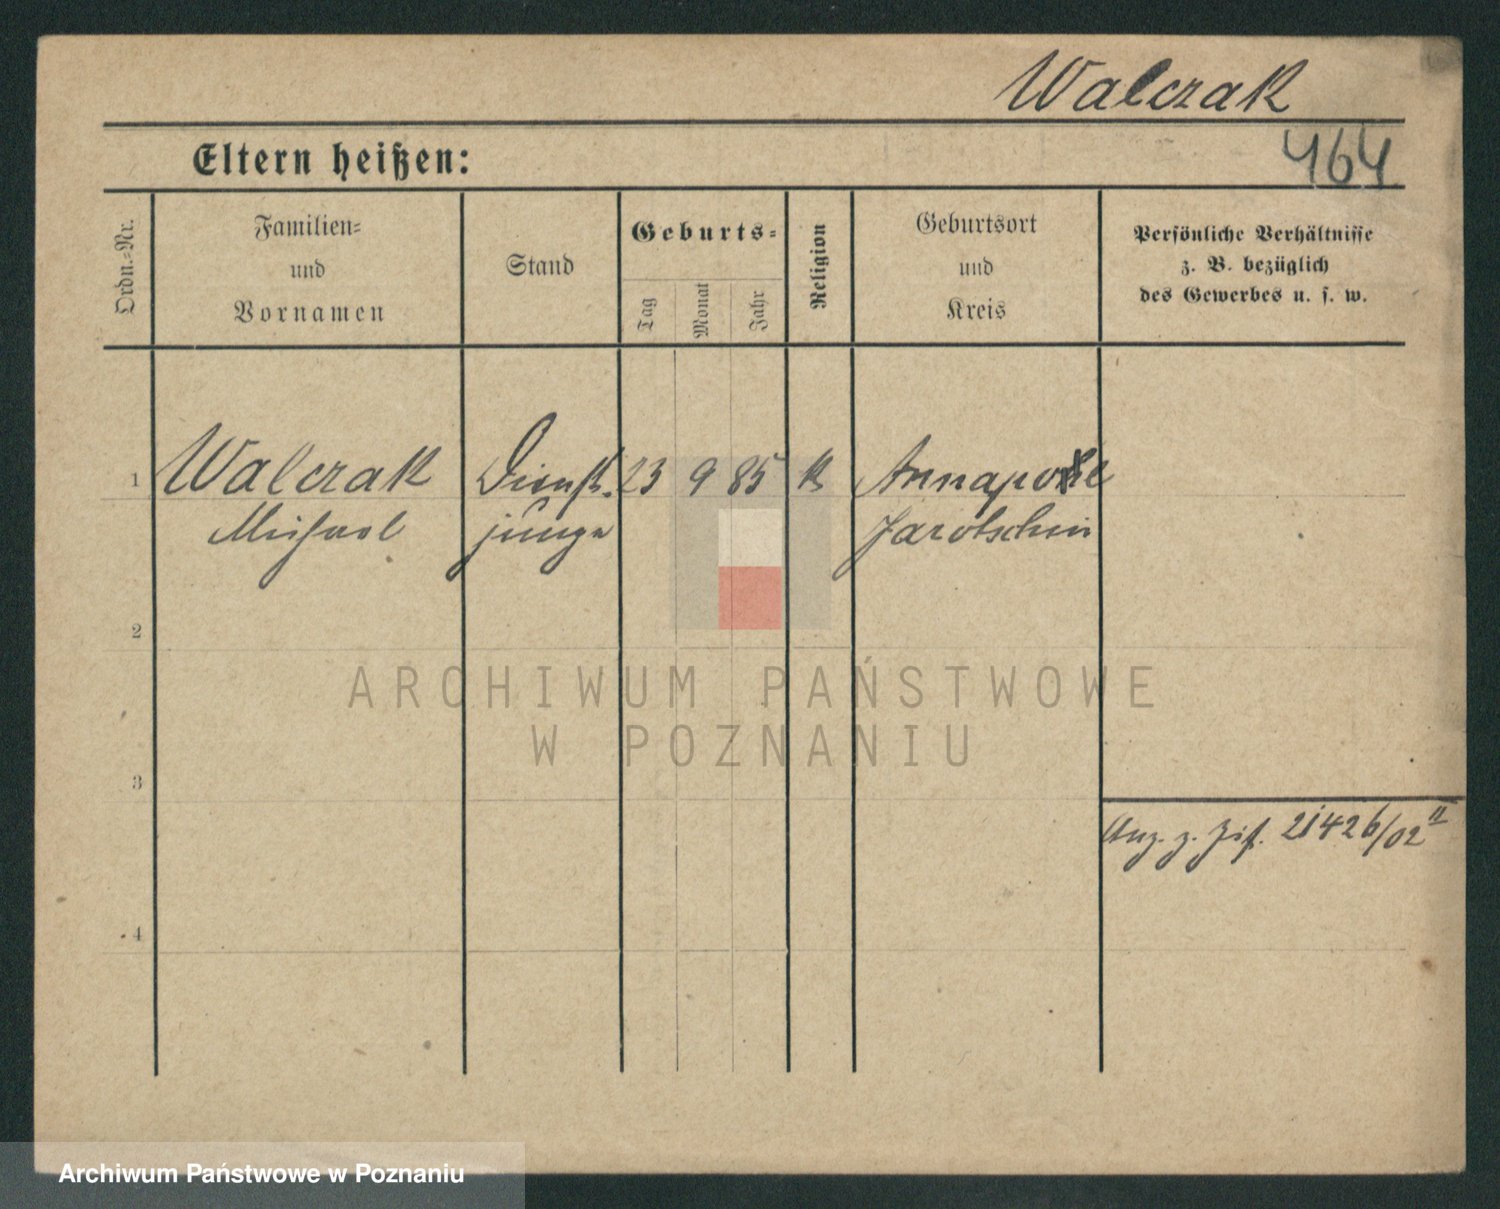 Walczak
464
Eltern heißen:
Ordn.-Nr.
Familien-
und
Vornamen
Stand
Geburts-
Tag
Monat
Jahr
Religion
Geburtsort
und
Kreis
Persönliche Verhältnisse
z. B. bezüglich
des Gewerbes u. s. w.
1 Walczak Dienst- 23 9 85 k Annapole
Michael junge Jarotschin
2
ARCHIWUM PAŃSTWOWE
W POZNANIU
3
Anz. z. 21426/02 II
4
Archiwum Państwowe w Poznaniu